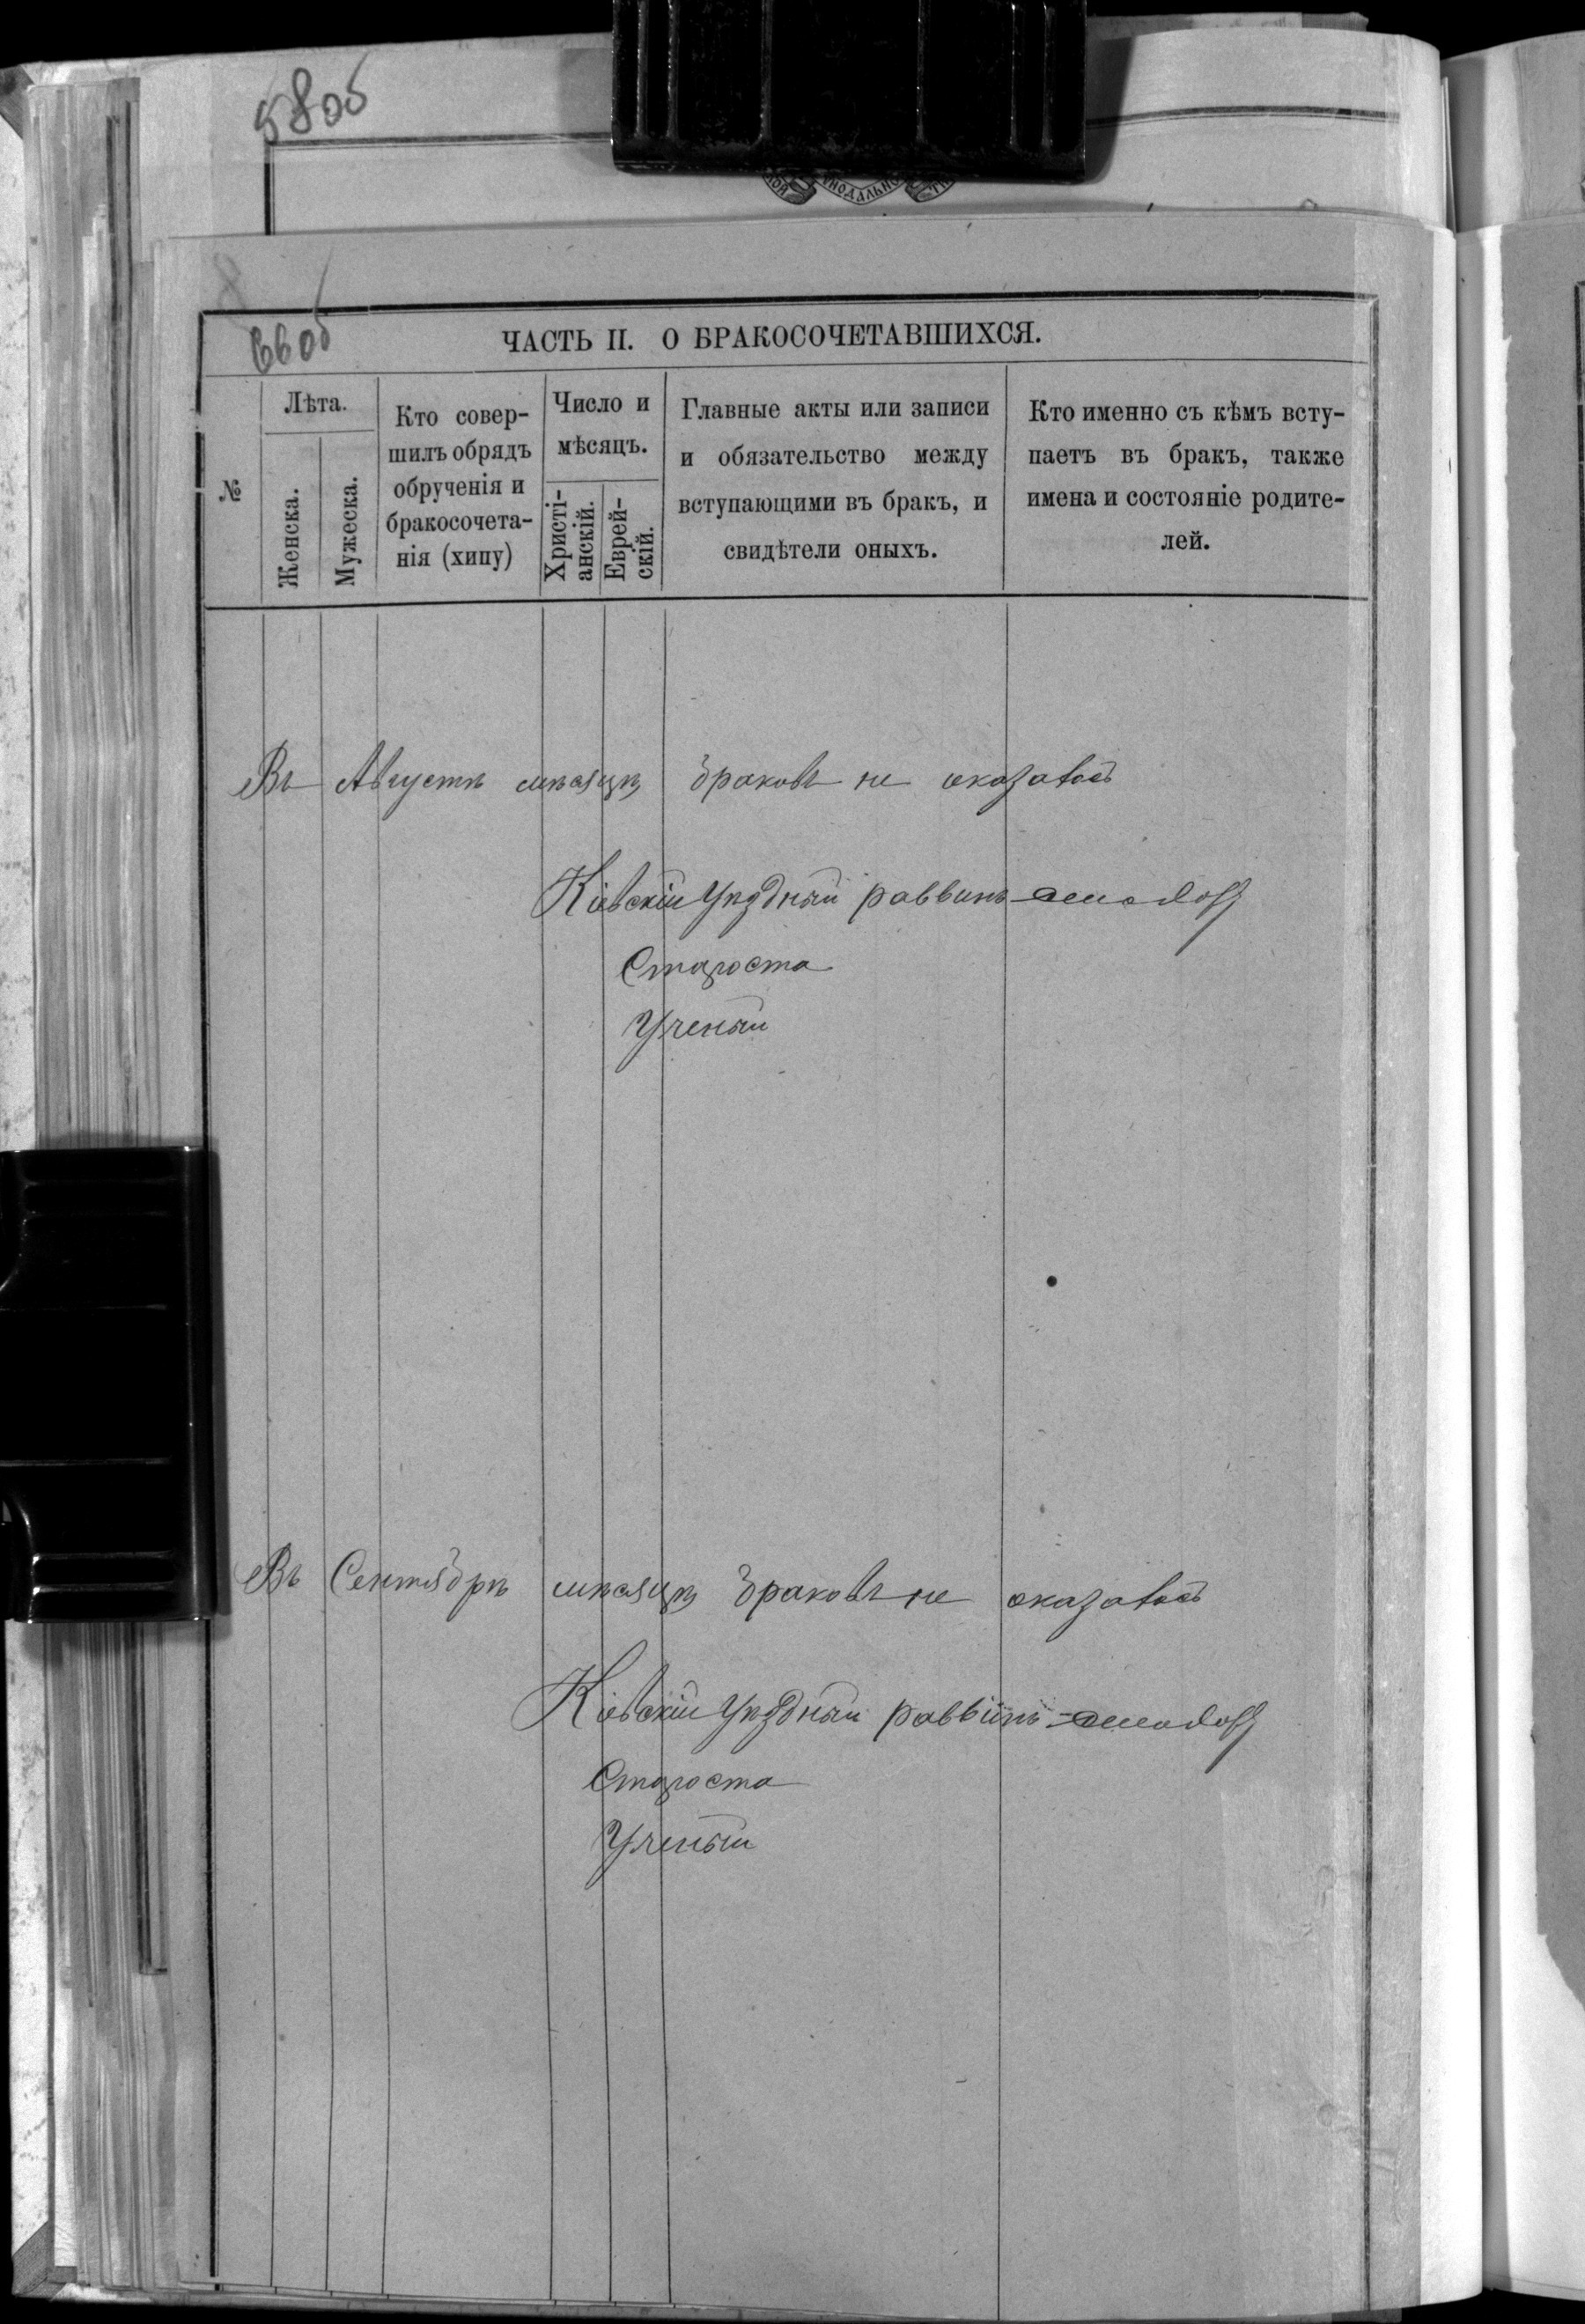 58об
66об
ЧАСТЬ II. О БРАКОСОЧЕТАВШИХСЯ.
№
Лѣта.
Женска.
Мужеска.
Кто совер-
шилъ обрядъ
обрученія и
бракосочета-
нія (хипу)
Число и
мѣсяцъ.
Христі-
анскій.
Еврей-
скій.
Главные акты или записи
и обязательство между
вступающими въ бракъ, и
свидѣтели оныхъ.
Кто именно съ кѣмъ всту-
паетъ въ бракъ, также
имена и состояніе родите-
лей.
Въ Августѣ мѣсяцѣ браковъ не оказалось
Кіевскій Уѣздный раввинъ
Староста
Ученый
Въ Сентябрѣ мѣсяцѣ браковъ не оказалось
Кіевскій Уѣздный раввинъ
Староста
Ученый